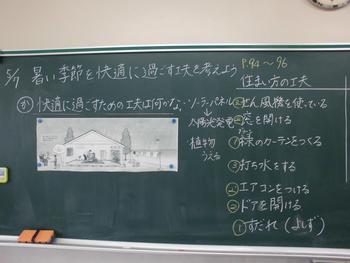 5/7 暑い季節を快適に過ごす工夫を考えよう
P.94~96
か 快適に過ごすための工夫は何かな。
ソーラーパネル
↓
太陽光発電
植物
うえる
住まい方の工夫
せん風機を使っている
窓を開ける
緑のカーテンをつくる
③打ち水をする
エアコンをつける
ドアを開ける
①すだれ(よしず)